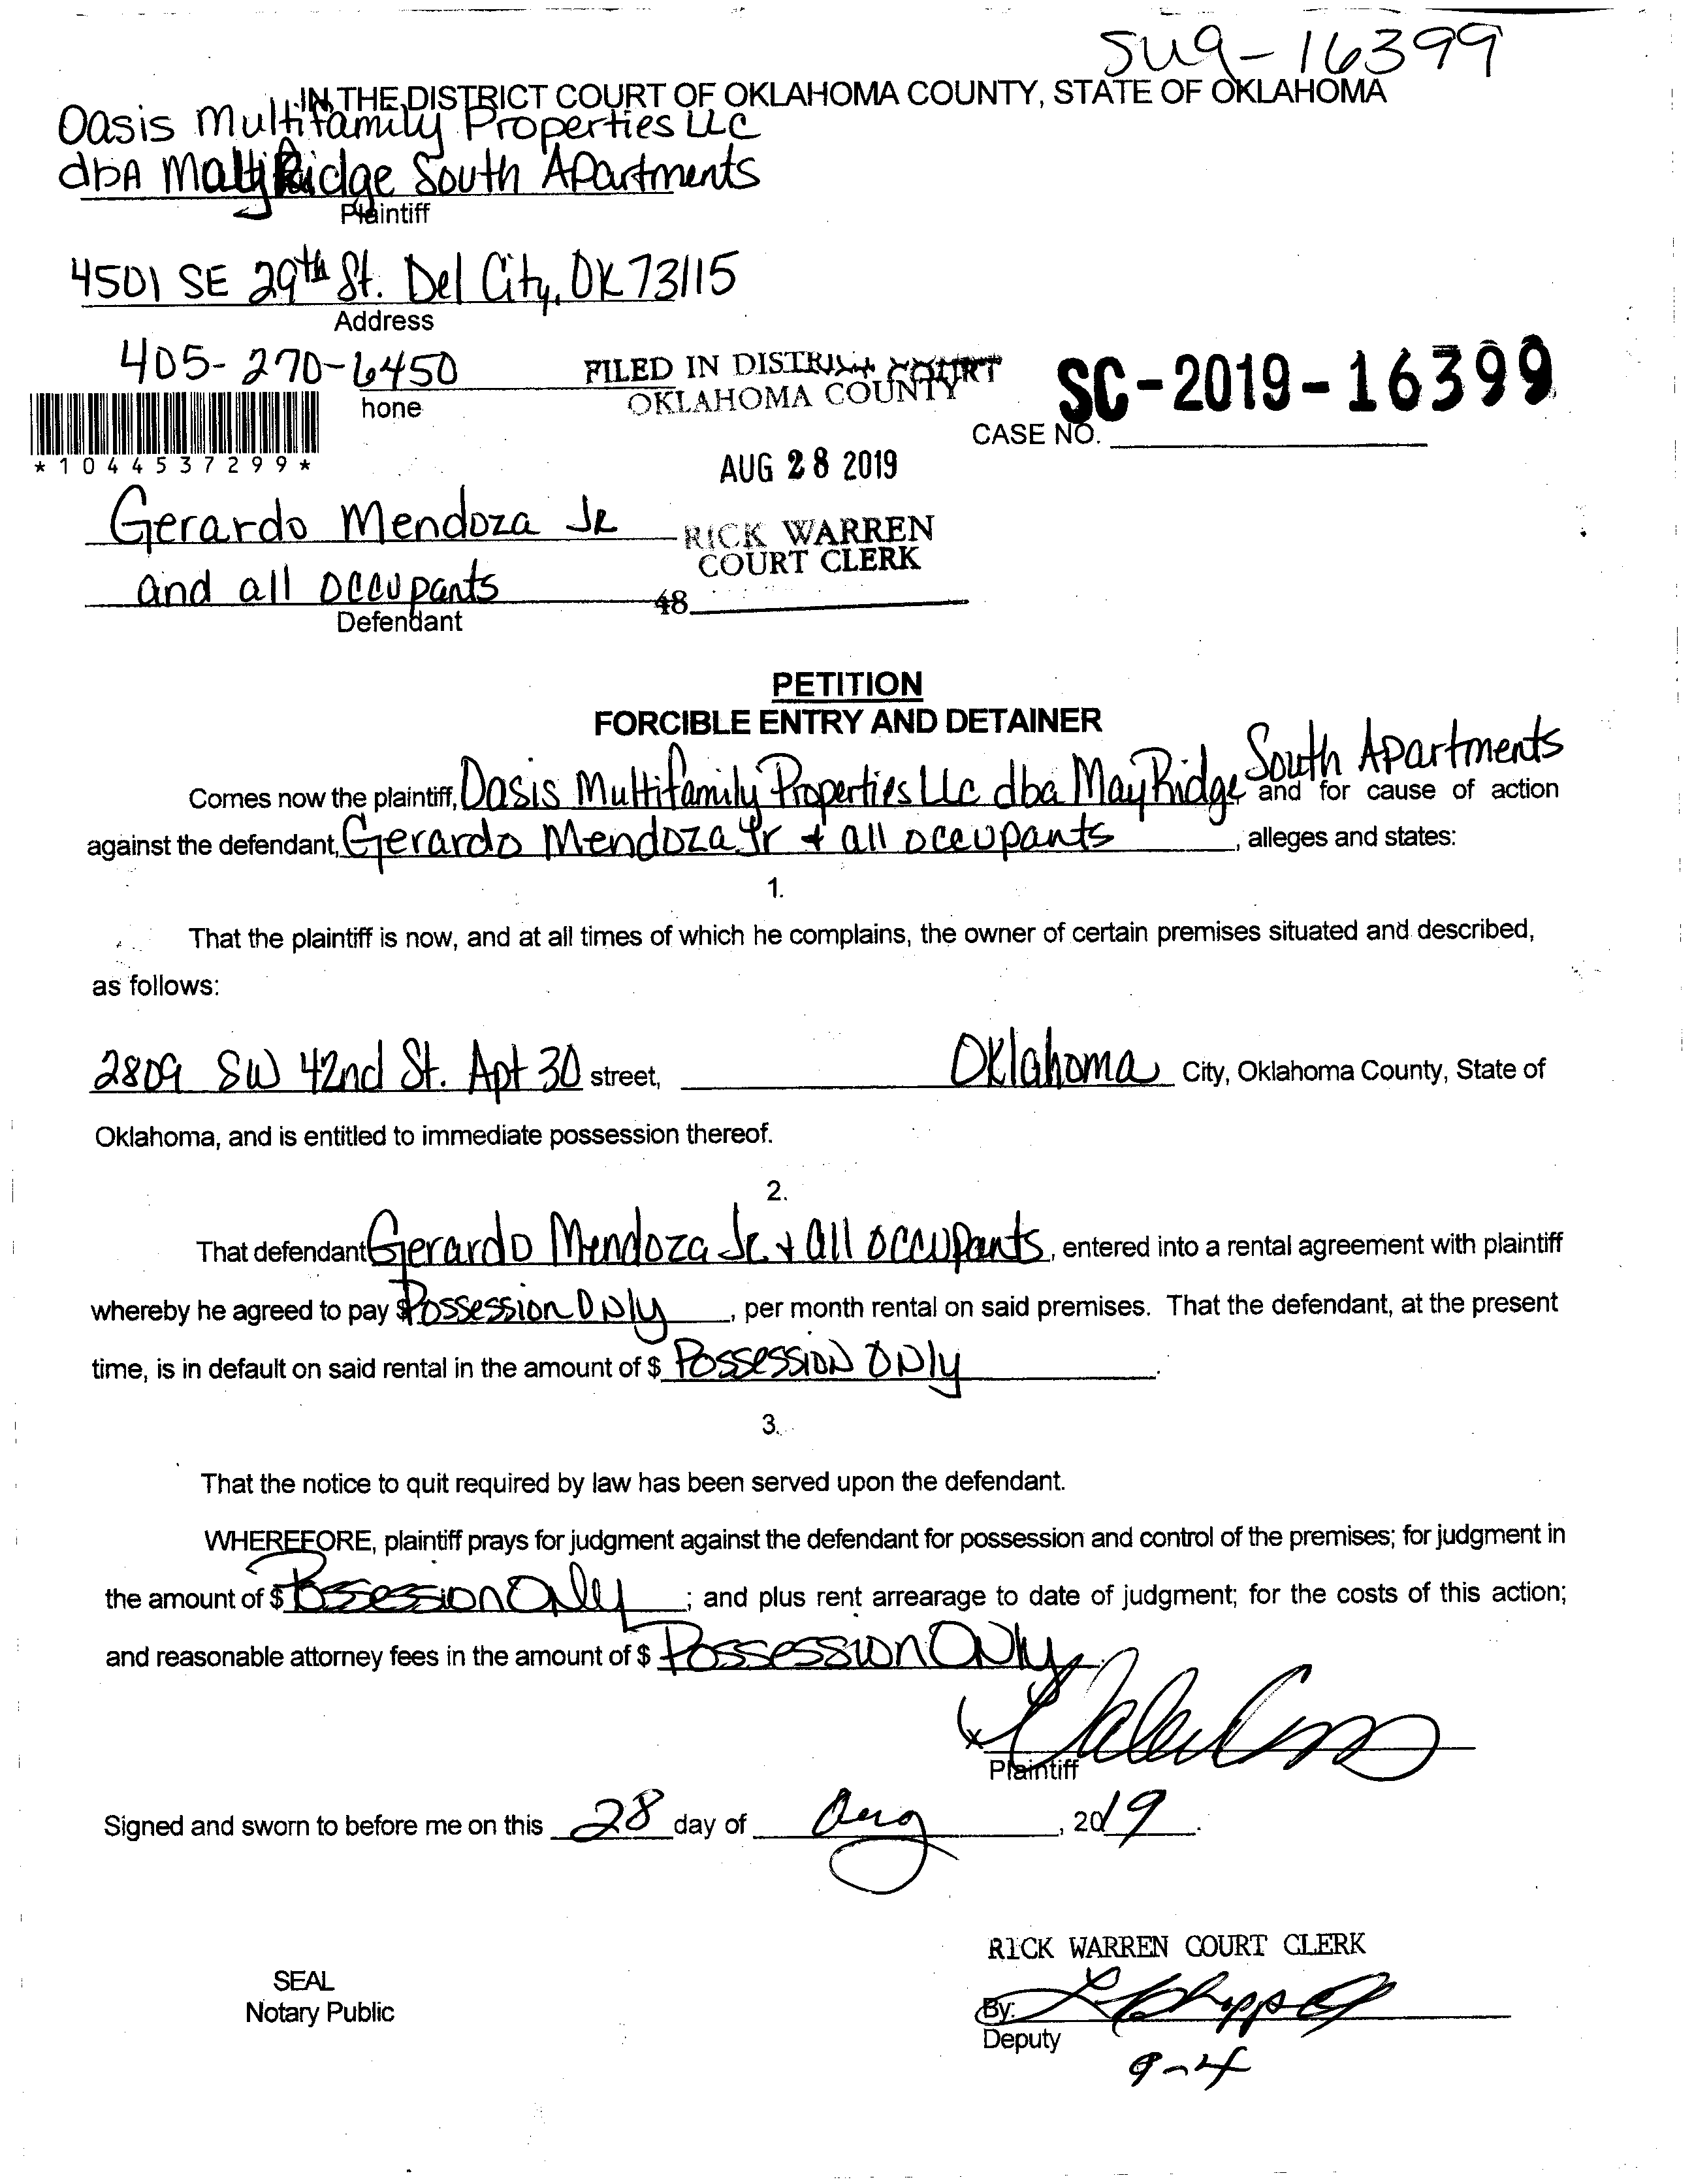 SU9-16399
IN THE DISTRICT COURT OF OKLAHOMA COUNTY, STATE OF OKLAHOMA
Oasis Multifamily Properties LLC
dbA May Ridge South Apartments
Plaintiff
4501 SE 29th St. Del City, OK 73115
Address
405-270-6450
hone
FILED IN DISTRICT COURT
OKLAHOMA COUNTY
SC-2019-16399
CASE NO.
*1044537299*
AUG 28 2019
Gerardo Mendoza JR
RICK WARREN
COURT CLERK
and all occupants
48
Defendant
PETITION
FORCIBLE ENTRY AND DETAINER
Comes now the plaintiff, Oasis Multifamily Properties LLc dba May Ridge South Apartments and for cause of action
against the defendant, Gerardo Mendoza Jr + all occupants, alleges and states:
1.
That the plaintiff is now, and at all times of which he complains, the owner of certain premises situated and described,
as follows:
2809 SW 42nd St. Apt 30 street, Oklahoma City, Oklahoma County, State of
Oklahoma, and is entitled to immediate possession thereof.
2.
That defendant Gerardo Mendoza Jr + all occupants, entered into a rental agreement with plaintiff
whereby he agreed to pay $ Possession Only, per month rental on said premises. That the defendant, at the present
time, is in default on said rental in the amount of $ Possession Only.
3.
That the notice to quit required by law has been served upon the defendant.
WHEREFORE, plaintiff prays for judgment against the defendant for possession and control of the premises; for judgment in
the amount of $ Possession Only; and plus rent arrearage to date of judgment; for the costs of this action;
and reasonable attorney fees in the amount of $ Possession Only.
x
Plaintiff
Signed and sworn to before me on this 28 day of Aug, 2019.
RICK WARREN COURT CLERK
SEAL
Notary Public
By:
Deputy
9-4